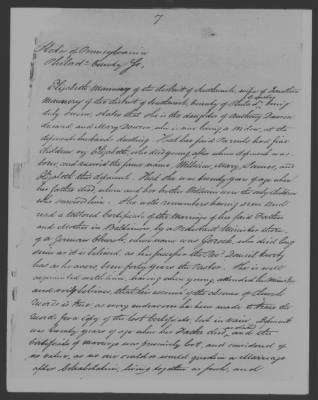 7
State of Pennsylvania
Philad.a County Ss,
Elizabeth Memmory of the district of Southwark, wife of
Memmory of the district of Southwark, County of Philad.a being
duly sworn, states that she is the daughter of Anthony Dawson
deceased and Mary Dawson, who is now living a widow, at the
deponents husbands dwelling. That her said Parents had four
Children viz Elizabeth, who died young after whom deponent was
born, and received the same name, William, Mary, James, and
Elizabeth this deponent. That she was twenty years of age when
her father died, when and her brother William were the only children
who survived him. She well remembers having seen and
read a lettered Certificate of the Marriage of her said Father
and Mother in Baltimore, by a Protestant Minister
of a German Church, whose name was Gorsch, who died long
since as it is believed, as his successor the Rev.d Daniel
has as he avers, been forty years the Pastor. She is well
acquainted with him, having when young, attended his Ministry
and verily believes, that his account of the of Church
Records is true, as every endeavour has been made to trace the
Records for a Copy of the lost Certificate, but in vain. Deponent
was twenty years of age when her Father died, and the
Certificate of marriage was previously lost, and considered of
no value, as no one could or would question a Marriage
after Cohabitation, living together as such, and